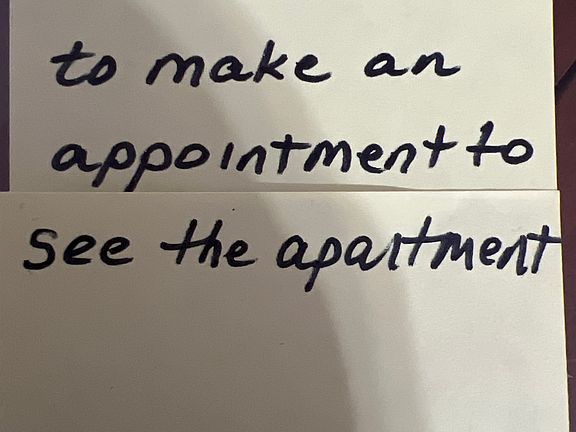 to make an
appointment to
see the apartment